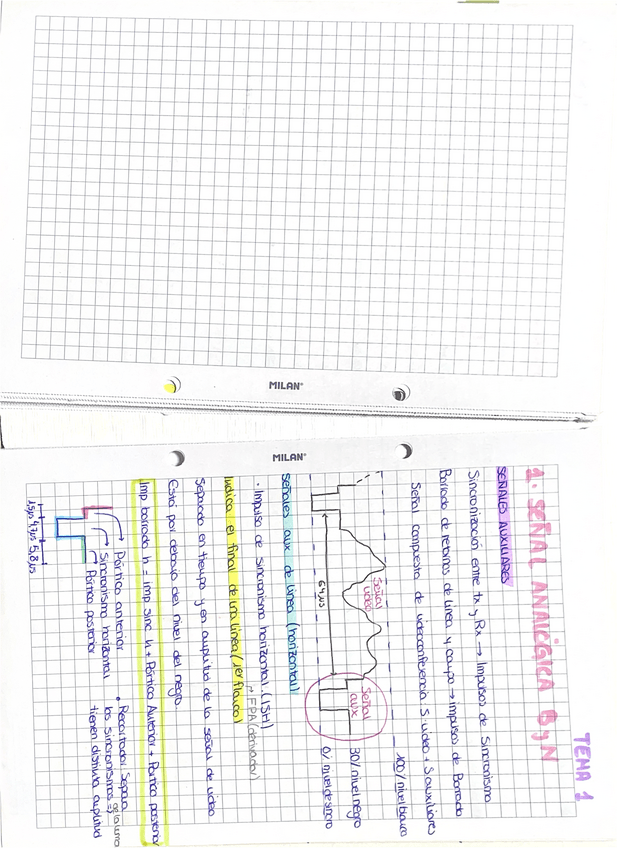 TEMA 1
1. SEÑAL ANALÓGICA B y N
SEÑALES AUXILIARES
Sincronización entre tx y Rx → Impulsos de Sincronismo
Borrado de retornos de línea y campo → impulsos de Borrado
Señal compuesta de videoconferencia: S. video + S auxiliares
100% nivel blanco
Señal video
64µs
Señal aux
30% nivel negro
0% nivel de sincro
Señales aux de línea (horizontal)
· Impulso de sincronismo horizontal (ISH)
↳ FPA (derivador)
Indica el final de una línea
Separado en tiempo y en amplitud de la señal de video
Está por debajo del nivel del negro.
Imp. borrado h = imp sinc h + Pórtico Anterior + Pórtico posterior
Pórtico anterior
Sincronismo horizontal
Pórtico posterior
1,5µs 4,7µs 5,8µs
• Recortador: Separa
los sincronismos de la luma
tienen distinta amplitud
MILAN
MILAN